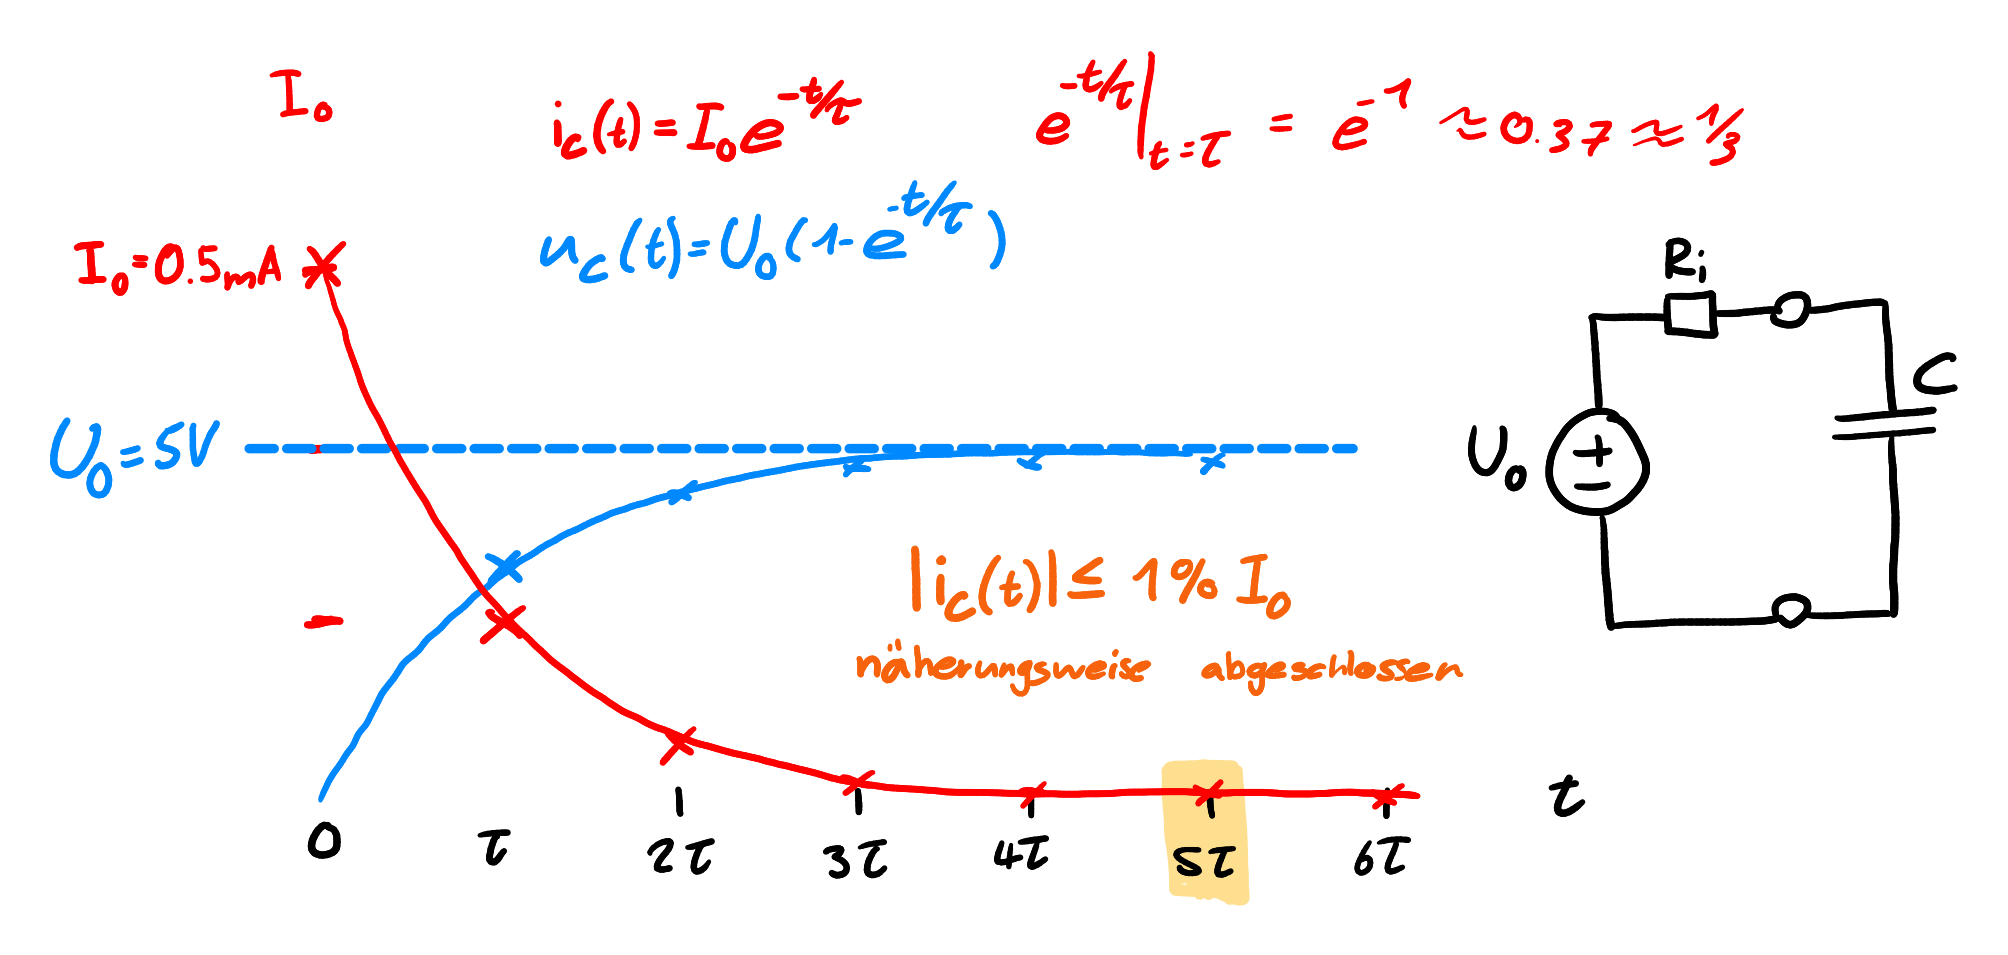 I₀
i_c(t) = I₀e^(-t/τ)
e^(-t/τ)|_(t=τ) = e^(-1) ≈ 0.37 ≈ 1/3
u_c(t) = U₀(1-e^(-t/τ))
I₀=0.5mA
R_i
C
U₀=5V
U₀
+
−
|i_c(t)| ≤ 1% I₀
näherungsweise abgeschlossen
t
0 τ 2τ 3τ 4τ 5τ 6τ